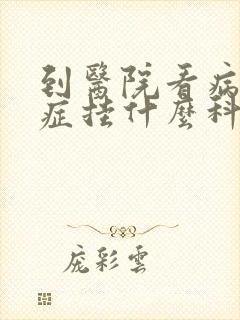 到醫院看病
症挂什麼科
庞彩雲